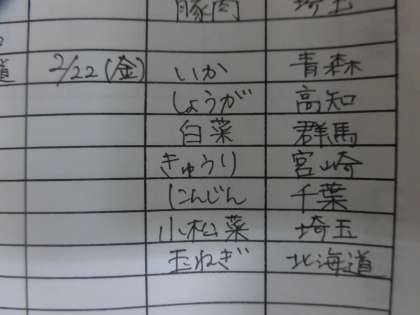 豚肉 埼玉
道 2/22(金) いか 青森
しょうが 高知
白菜 群馬
きゅうり 宮崎
にんじん 千葉
小松菜 埼玉
玉ねぎ 北海道